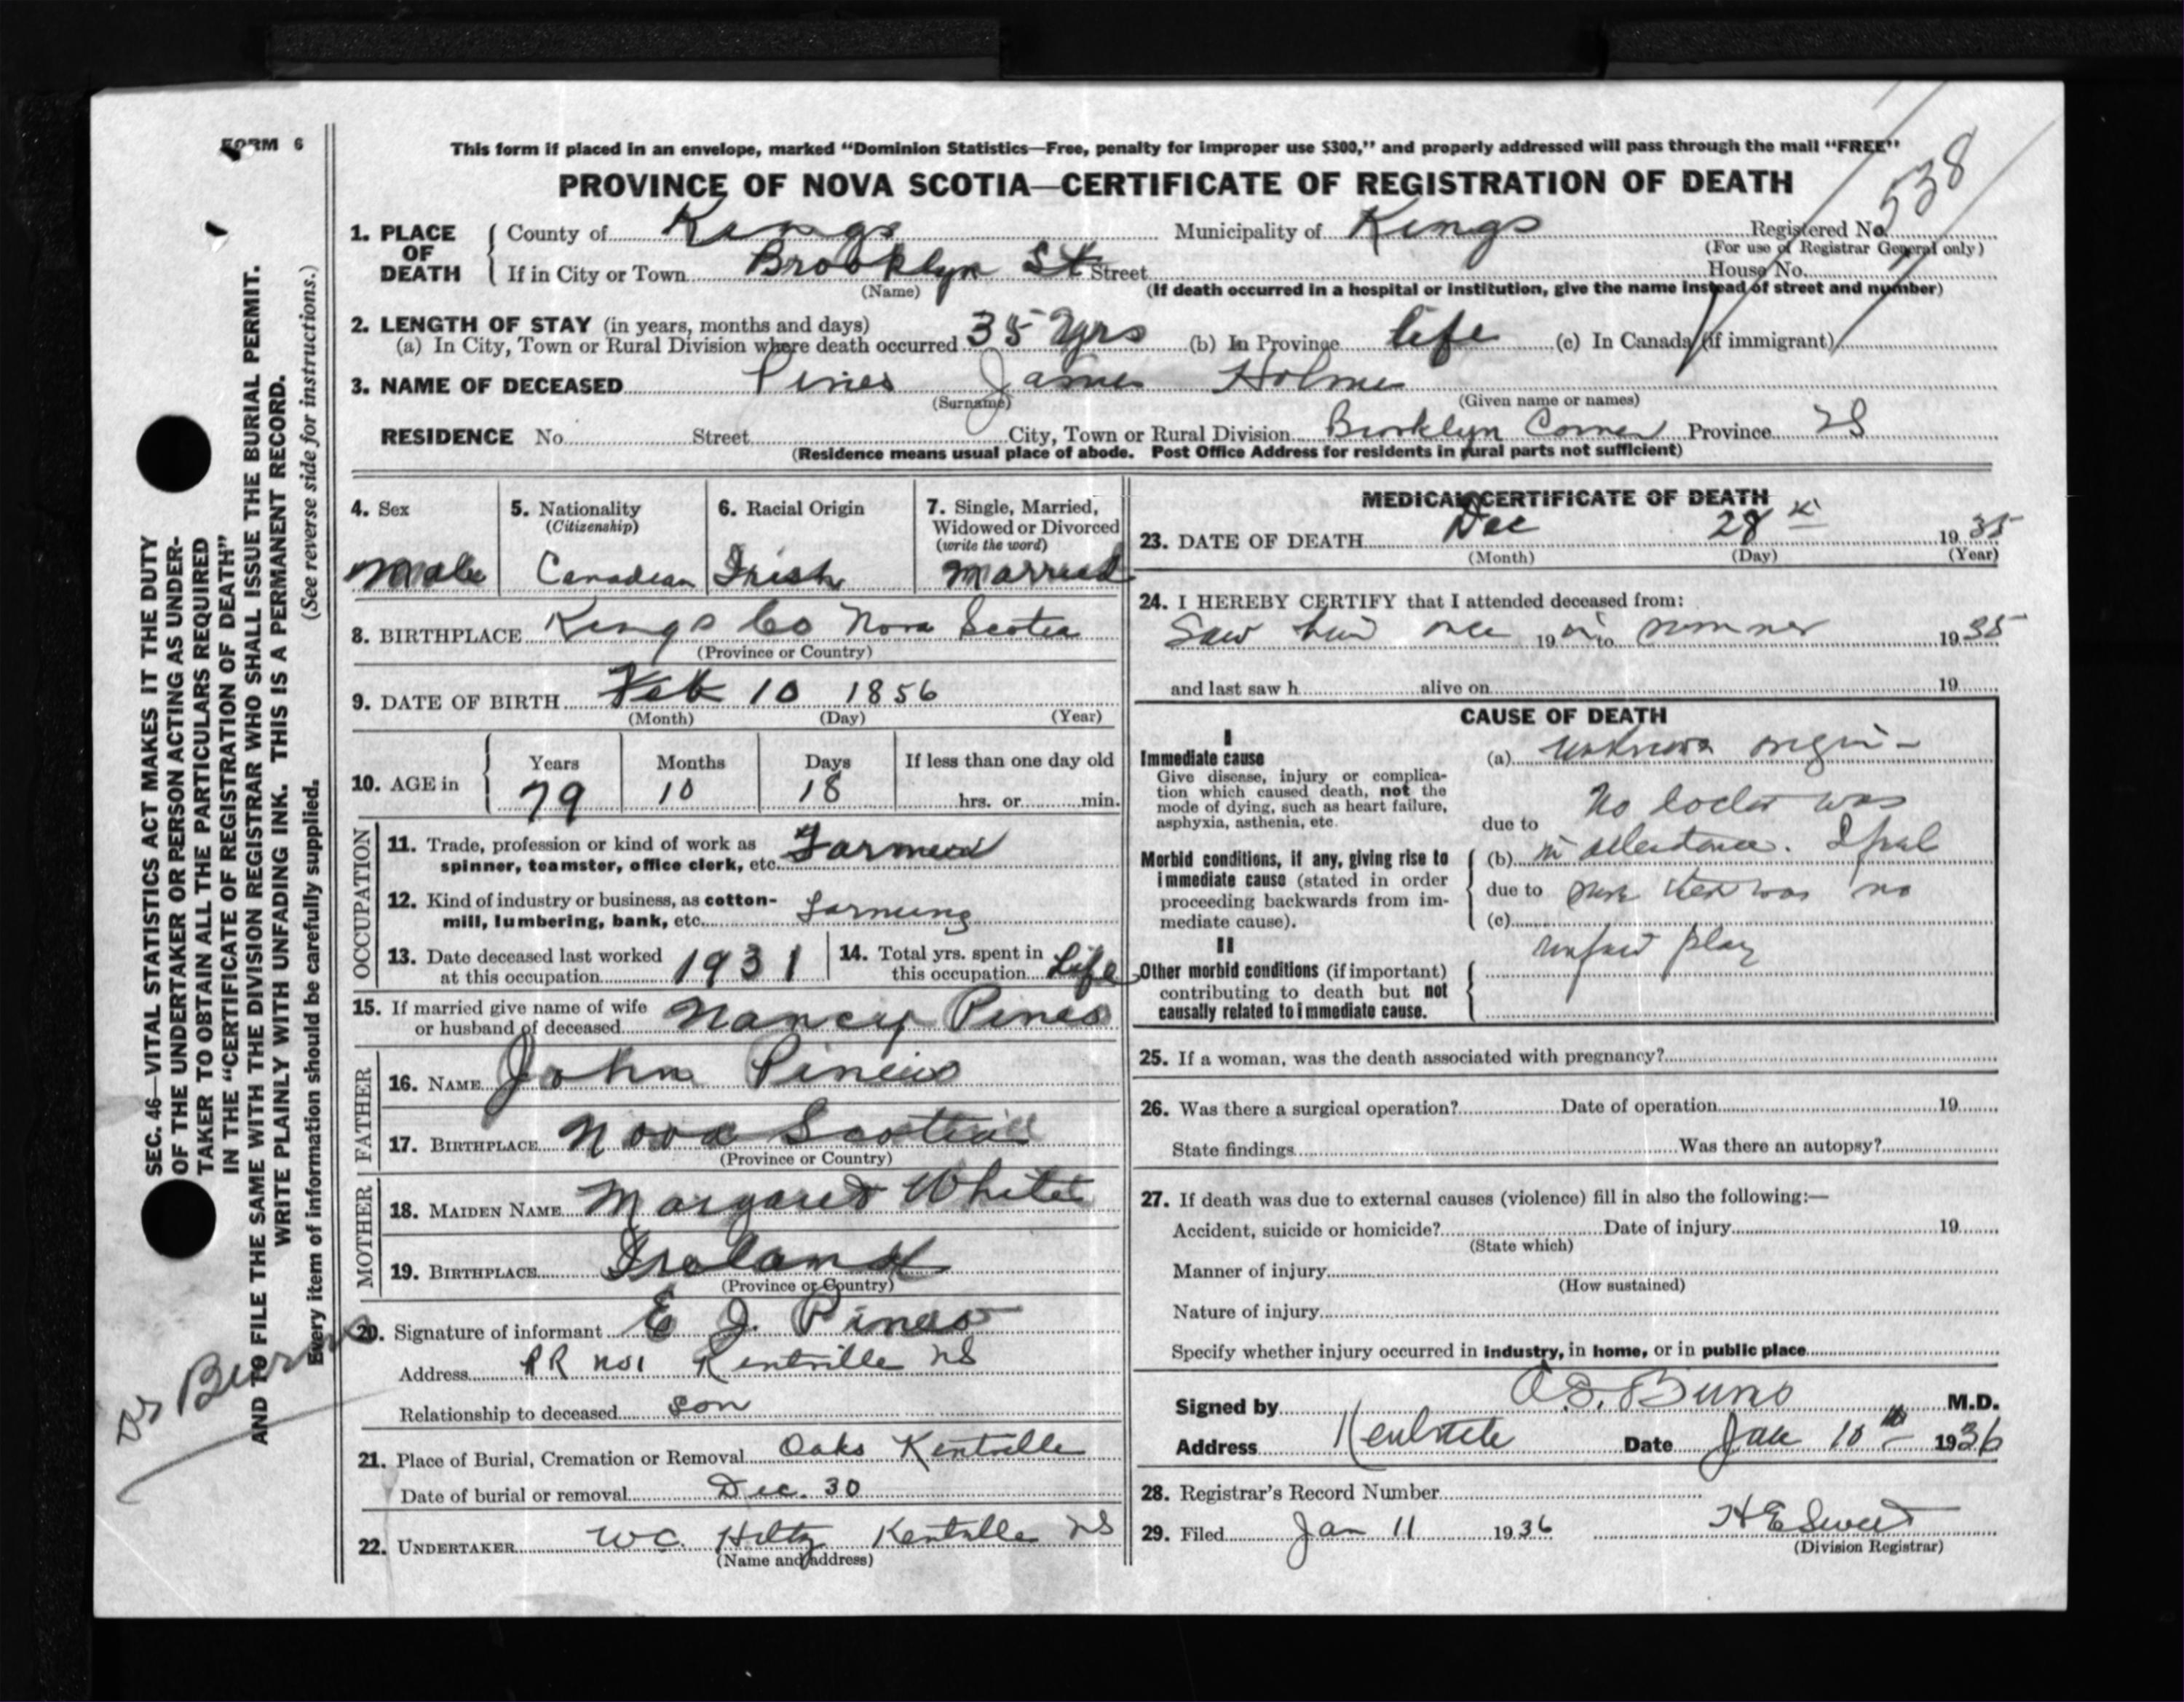 FORM 6
This form if placed in an envelope, marked “Dominion Statistics—Free, penalty for improper use $300,” and properly addressed will pass through the mail “FREE”
PROVINCE OF NOVA SCOTIA—CERTIFICATE OF REGISTRATION OF DEATH
538
1. PLACE OF DEATH County of Kings Municipality of Kings Registered No.
(For use of Registrar General only)
If in City or Town Brooklyn St Street House No.
(Name) (If death occurred in a hospital or institution, give the name instead of street and number)
2. LENGTH OF STAY (in years, months and days)
(a) In City, Town or Rural Division where death occurred 35 Yrs (b) In Province life (c) In Canada (if immigrant)
3. NAME OF DECEASED Pines James Holmes
(Surname) (Given name or names)
RESIDENCE No. Street City, Town or Rural Division Brooklyn Corner Province NS
(Residence means usual place of abode. Post Office Address for residents in rural parts not sufficient)
4. Sex Male
5. Nationality (Citizenship) Canadian
6. Racial Origin Irish
7. Single, Married, Widowed or Divorced (write the word) Married
8. BIRTHPLACE Kings Co Nova Scotia
(Province or Country)
9. DATE OF BIRTH Feb 10 1856
(Month) (Day) (Year)
10. AGE in Years 79 Months 10 Days 18 If less than one day old hrs. or min.
OCCUPATION
11. Trade, profession or kind of work as spinner, teamster, office clerk, etc. Farmer
12. Kind of industry or business, as cotton-mill, lumbering, bank, etc. farming
13. Date deceased last worked at this occupation 1931
14. Total yrs. spent in this occupation Life
15. If married give name of wife or husband of deceased Nancy Pines
FATHER
16. NAME John Pineo
17. BIRTHPLACE Nova Scotia
(Province or Country)
MOTHER
18. MAIDEN NAME Margaret White
19. BIRTHPLACE Ireland
(Province or Country)
20. Signature of informant E J. Pineo
Address RR No1 Kentville NS
Relationship to deceased son
21. Place of Burial, Cremation or Removal Oaks Kentville
Date of burial or removal Dec. 30
22. UNDERTAKER WC. Hiltz Kentville NS
(Name and address)
MEDICAL CERTIFICATE OF DEATH
23. DATE OF DEATH Dec 28 1935
(Month) (Day) (Year)
24. I HEREBY CERTIFY that I attended deceased from:
Saw him once 19 in to summer 1935
and last saw h alive on 19
CAUSE OF DEATH
I
Immediate cause
Give disease, injury or complication which caused death, not the mode of dying, such as heart failure, asphyxia, asthenia, etc.
(a) unknown origin -
due to No doctor was
Morbid conditions, if any, giving rise to immediate cause (stated in order proceeding backwards from immediate cause).
(b) in attendance. I feel
due to sure there was no
(c)
unfair play
II
Other morbid conditions (if important) contributing to death but not causally related to immediate cause.
25. If a woman, was the death associated with pregnancy?
26. Was there a surgical operation? Date of operation 19
State findings Was there an autopsy?
27. If death was due to external causes (violence) fill in also the following:—
Accident, suicide or homicide? Date of injury 19
(State which)
Manner of injury
(How sustained)
Nature of injury
Specify whether injury occurred in industry, in home, or in public place
Signed by A.S. Burns M.D.
Address Kentville Date Jan 10th 1936
28. Registrar's Record Number
29. Filed Jan 11 1936 H E Sweet
(Division Registrar)
SEC. 46—VITAL STATISTICS ACT MAKES IT THE DUTY
OF THE UNDERTAKER OR PERSON ACTING AS UNDER-
TAKER TO OBTAIN ALL THE PARTICULARS REQUIRED
IN THE “CERTIFICATE OF REGISTRATION OF DEATH”
AND TO FILE THE SAME WITH THE DIVISION REGISTRAR WHO SHALL ISSUE THE BURIAL PERMIT.
WRITE PLAINLY WITH UNFADING INK. THIS IS A PERMANENT RECORD.
Every item of information should be carefully supplied. (See reverse side for instructions.)
Dr Burns